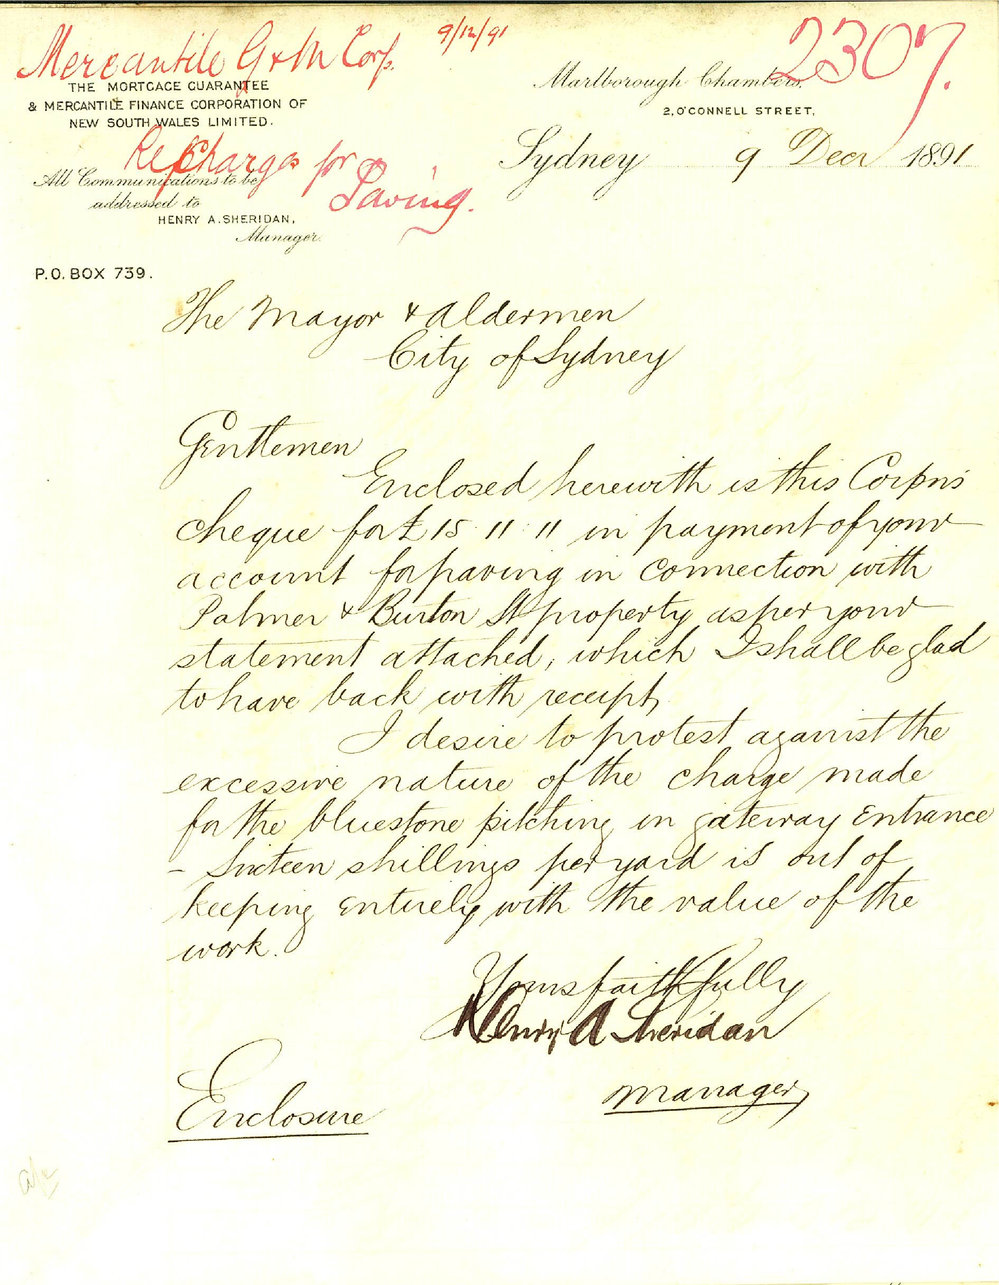 Mercantile G & M Corp. 9/12/91
2307.
THE MORTGAGE GUARANTEE
& MERCANTILE FINANCE CORPORATION OF
NEW SOUTH WALES LIMITED.
Marlborough Chambers,
2, O'CONNELL STREET,
Re Charges for
Paving.
Sydney 9 Decr 1891
All Communications to be
addressed to
HENRY A. SHERIDAN,
Manager.
P.O. BOX 739.
The Mayor & Aldermen
City of Sydney
Gentlemen
Enclosed herewith is this Corpn's
cheque for £15 11 11 in payment of your
account for paving in connection with
Palmer & Burton St property as per your
statement attached, which I shall be glad
to have back with receipt,
I desire to protest against the
excessive nature of the charge made
for the bluestone pitching in gateway entrance
- Sixteen shillings per yard is out of
keeping entirely with the value of the
work.
Yours faithfully
Henry A Sheridan
Manager
Enclosure